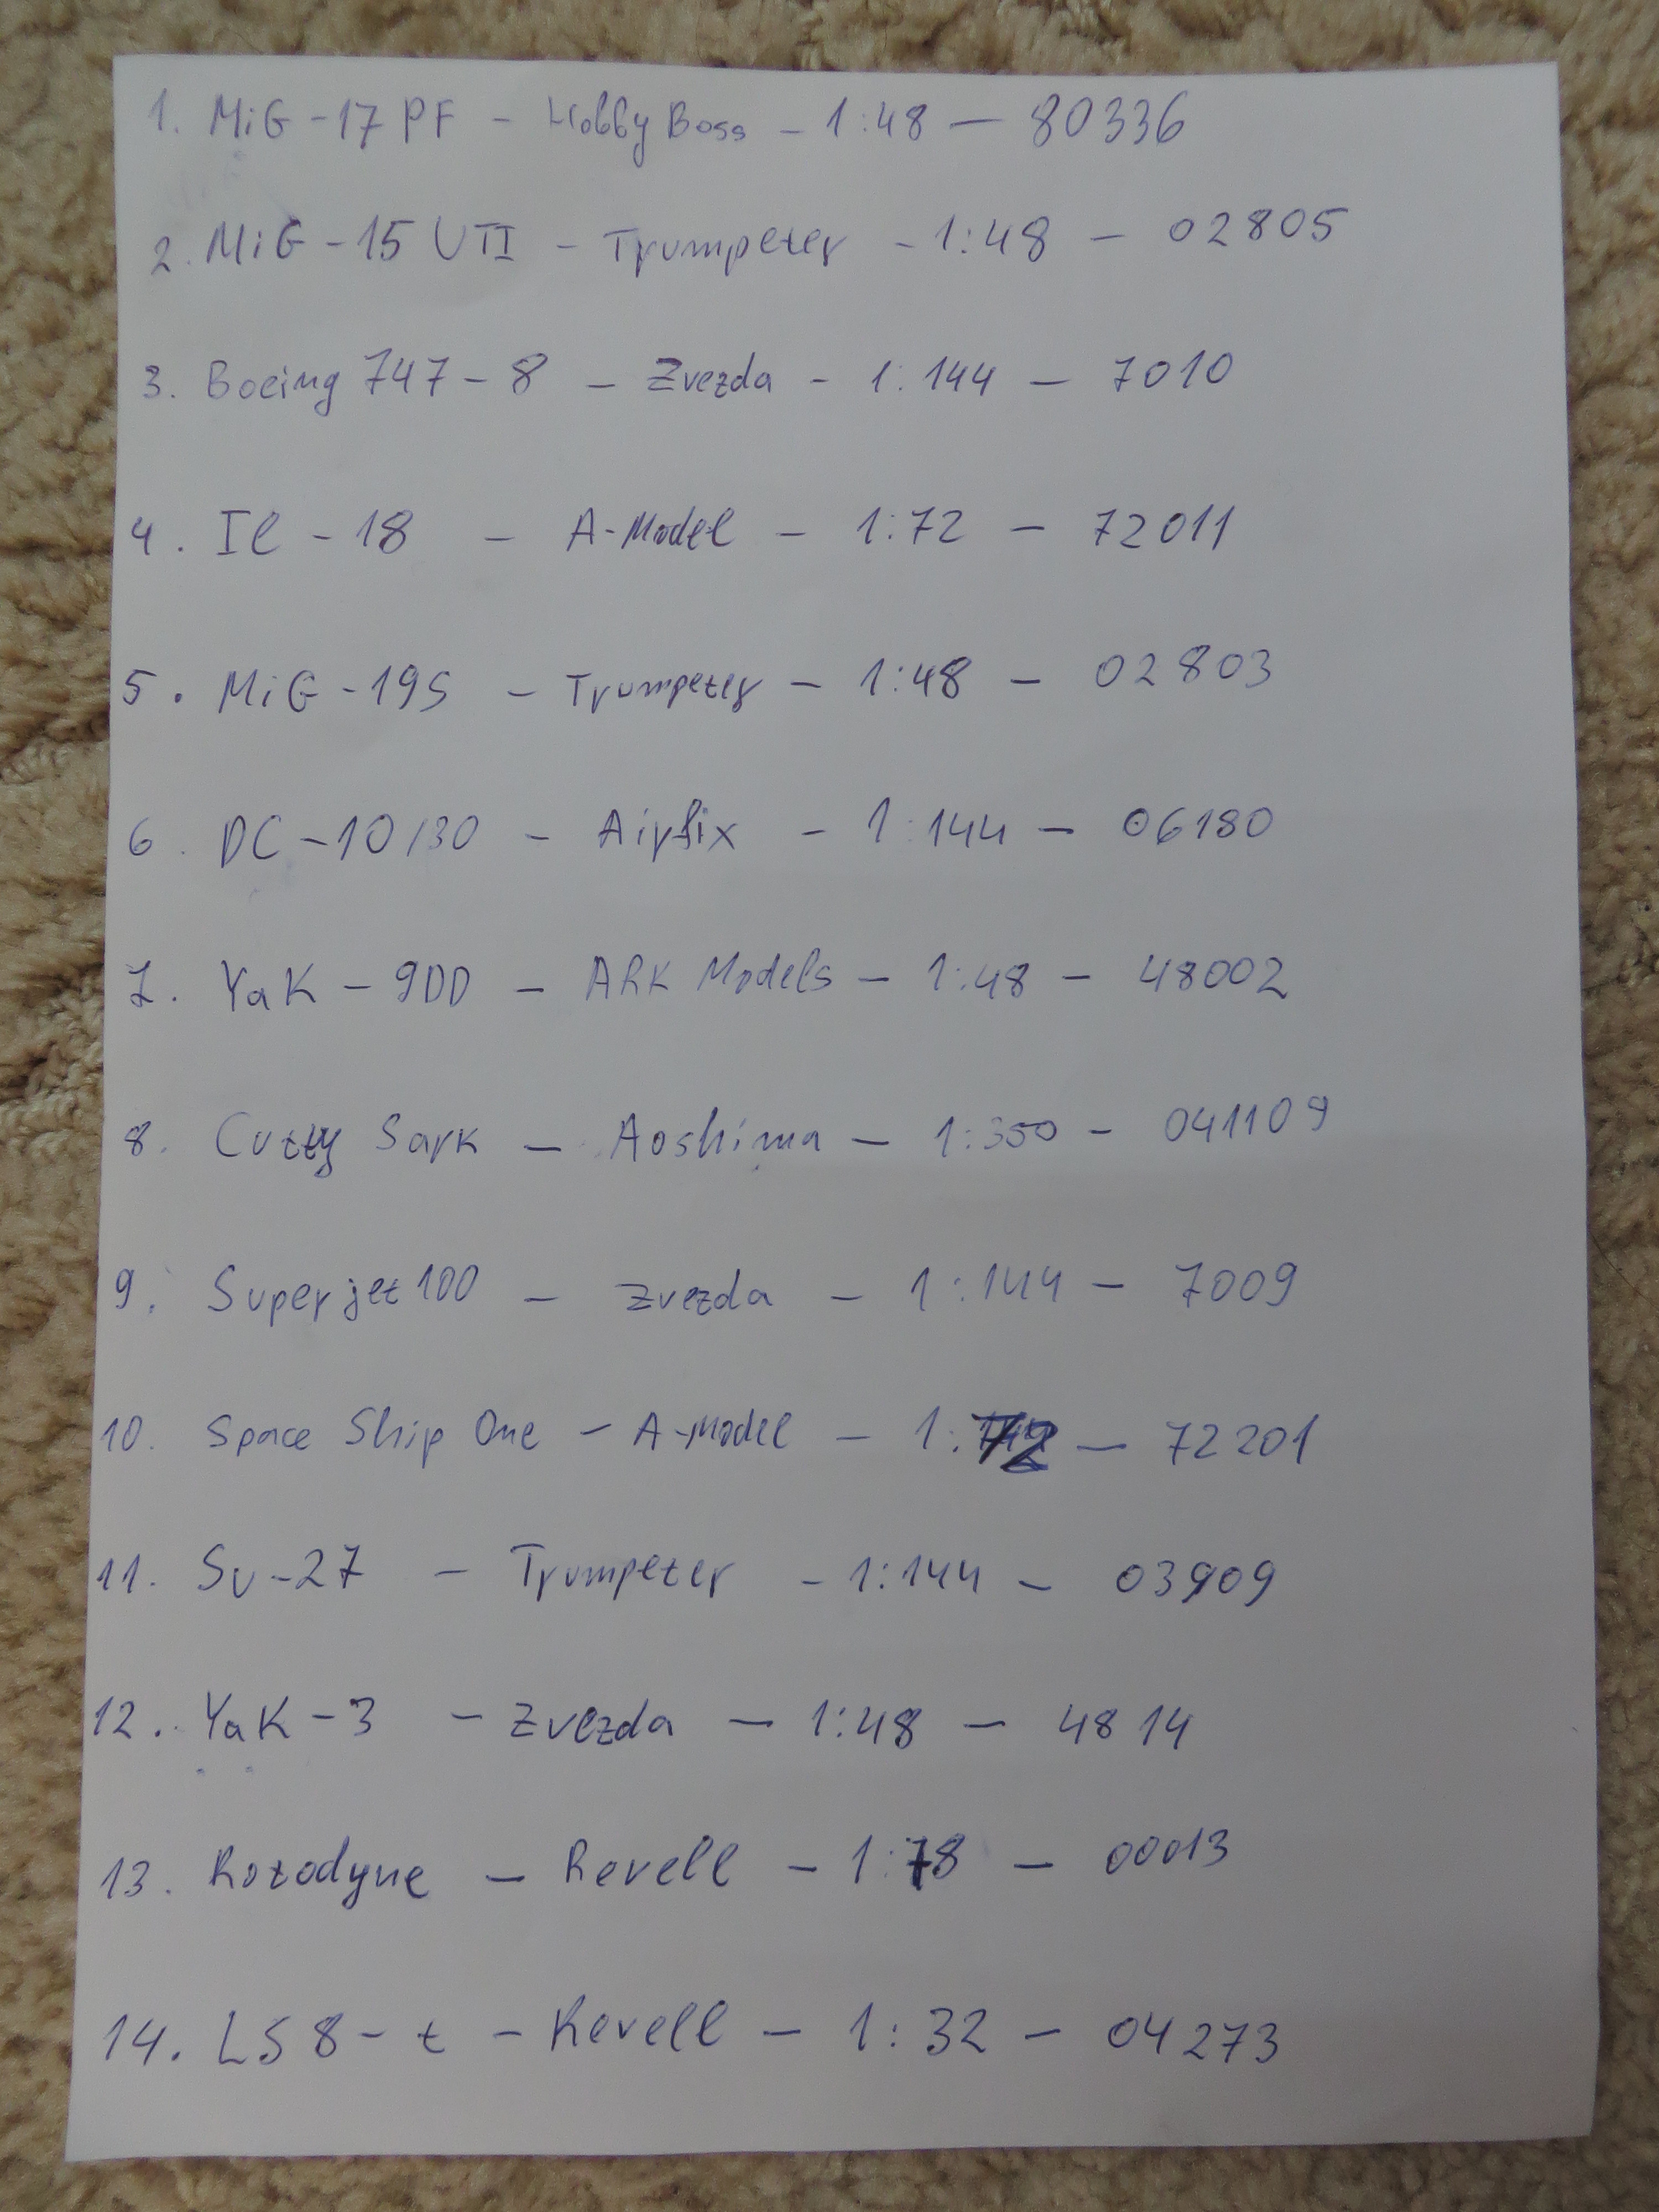 1. MiG-17 PF - Hobby Boss - 1:48 - 80336
2. MiG-15 UTI - Trumpeter - 1:48 - 02805
3. Boeing 747-8 - Zvezda - 1:144 - 7010
4. Il-18 - A-Model - 1:72 - 72011
5. MiG-19S - Trumpeter - 1:48 - 02803
6. DC-10/30 - Airfix - 1:144 - 06180
7. Yak-9DD - ARK Models - 1:48 - 48002
8. Cutty Sark - Aoshima - 1:350 - 041109
9. Superjet 100 - Zvezda - 1:144 - 7009
10. Space Ship One - A-Model - 1:72 - 72201
11. Su-27 - Trumpeter - 1:144 - 03909
12. Yak-3 - Zvezda - 1:48 - 4814
13. Rotodyne - Revell - 1:78 - 00013
14. LS 8-t - Revell - 1:32 - 04273